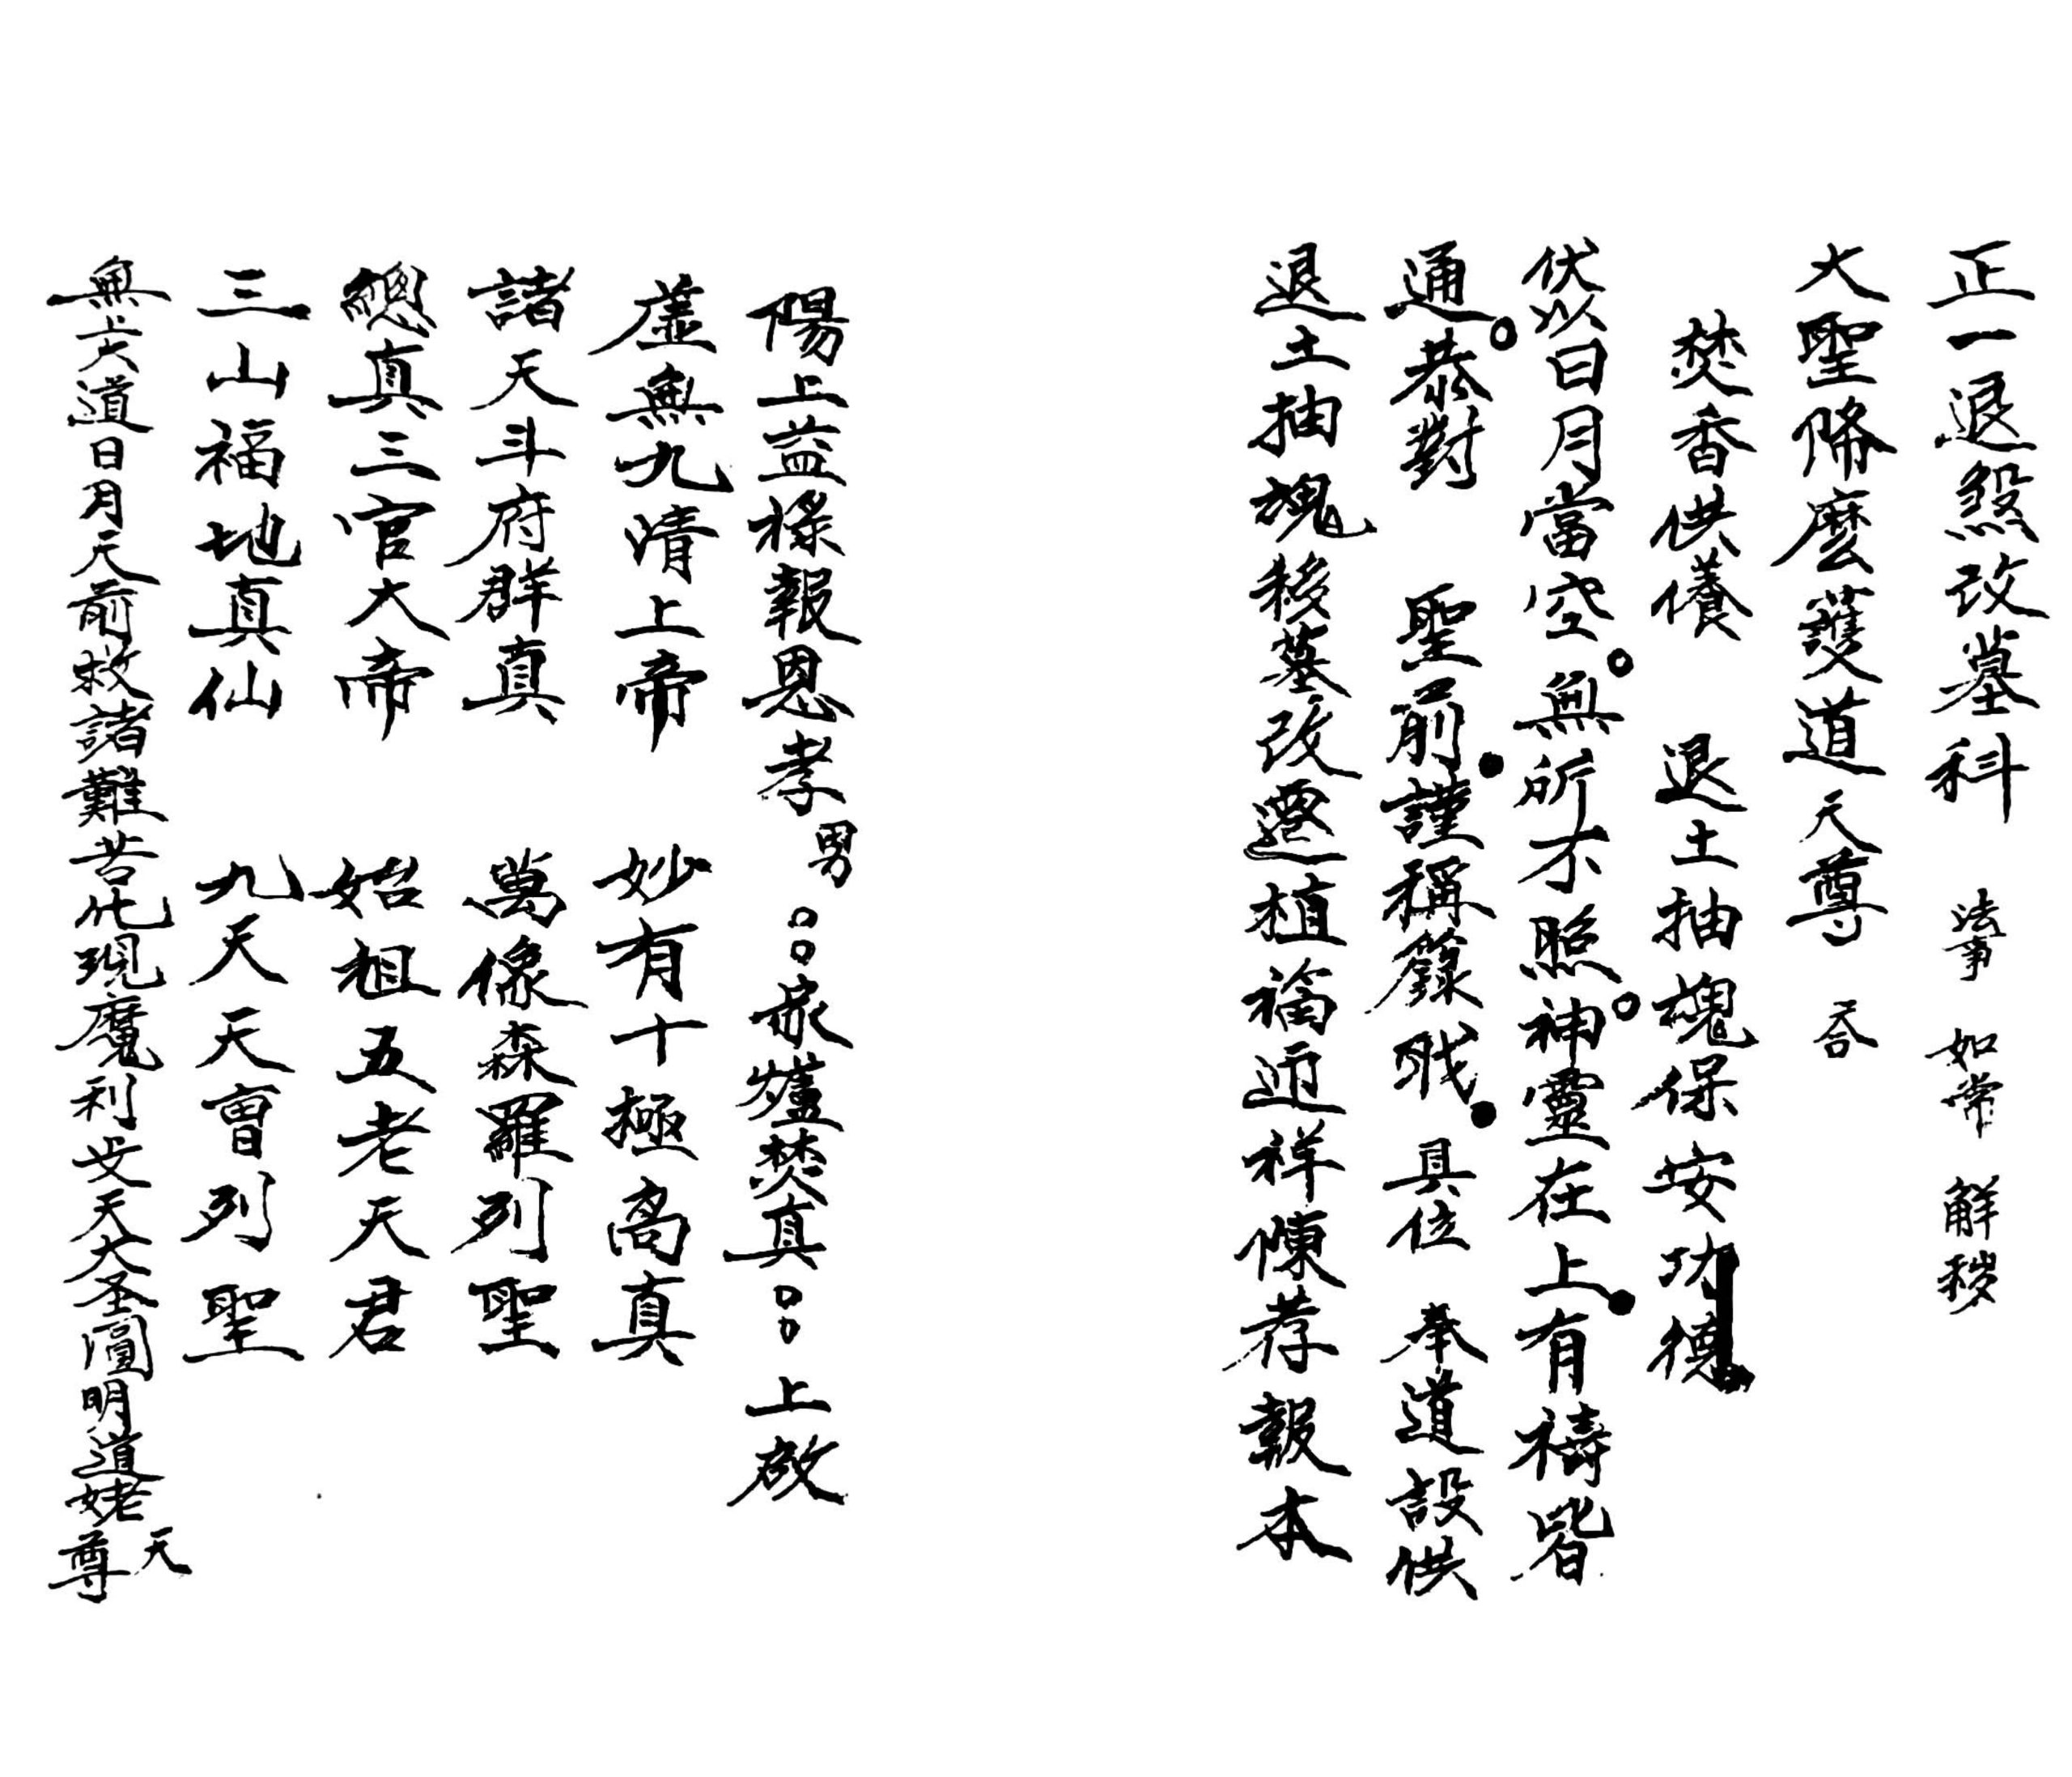 正一退煞改墓科 法事 如常 解穢
大聖降魔護道天尊  吞
焚香供養 退土抽魂保安功德
伏以日月當空。無所不照。神靈在上有禱皆
通。恭對 聖前謹稱籙職 具位 奉道設供
退土抽魂移墓改遷植福迎祥陳荐報本
陽上益祿報恩孝男 家爐焚真 上啟
虛無九清上帝 妙有十極高真
諸天斗府群真 萬像森羅列聖
總真三官大帝 始祖五老天君
三山福地真仙 九天天曹列聖
無上大道日月天前救諸難苦化現魔利支天大圣圓明道姥天尊